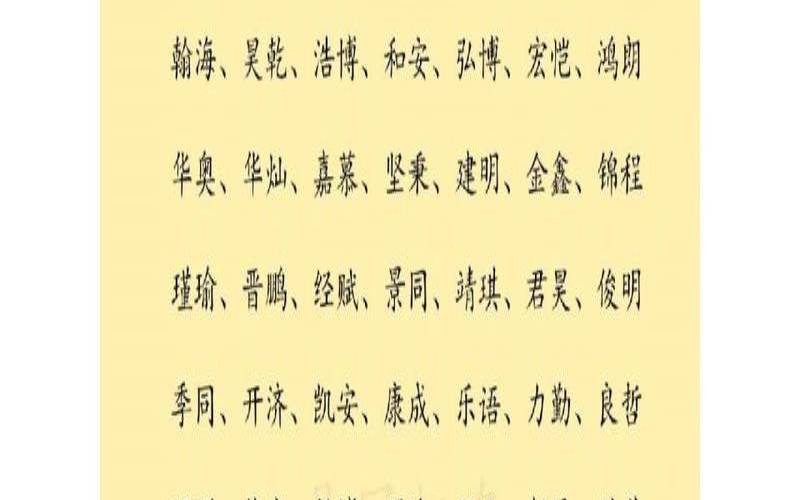 翰海、昊乾、浩博、和安、弘博、宏恺、鸿朗
华奥、华灿、嘉慕、坚秉、建明、金鑫、锦程
瑾瑜、晋鹏、经赋、景同、靖琪、君昊、俊明
季同、开济、凯安、康成、乐语、力勤、良哲